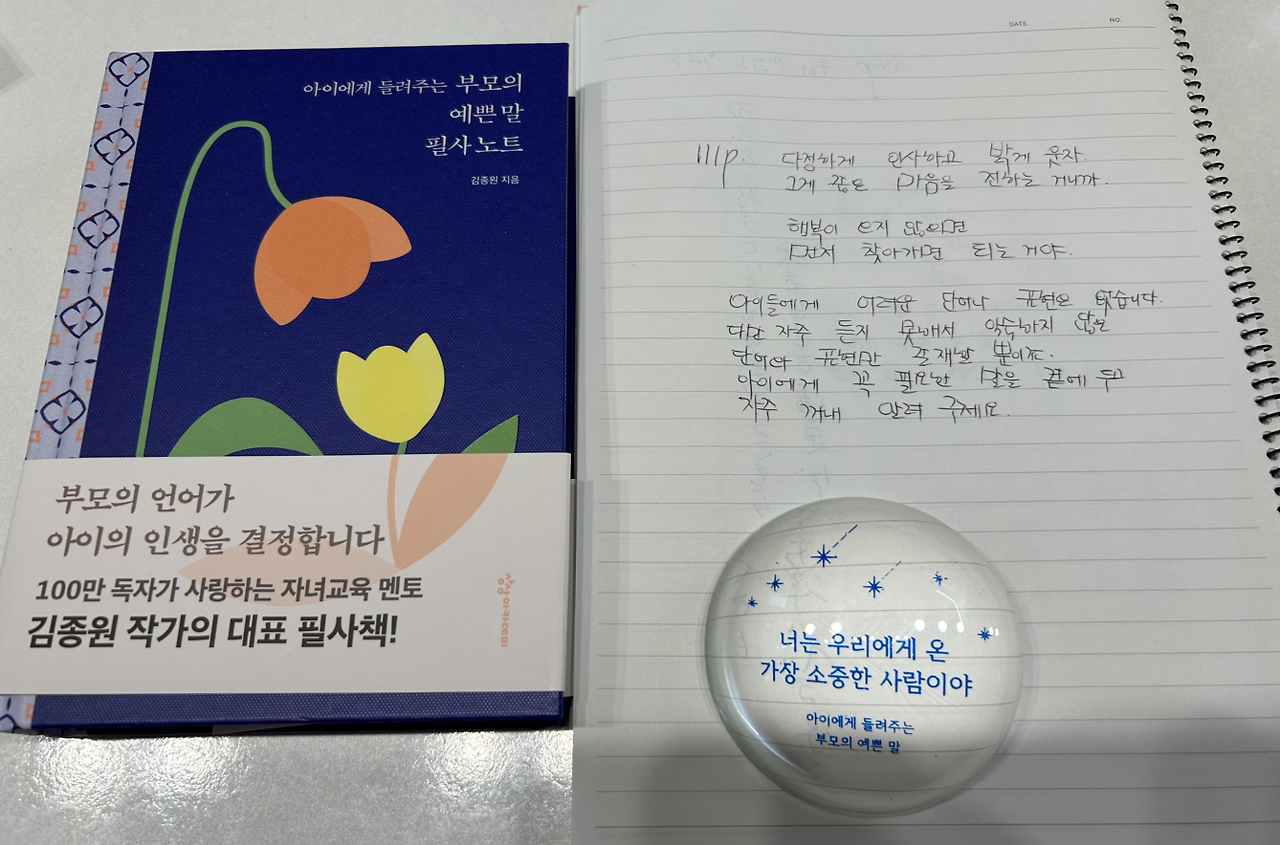 아이에게 들려주는 부모의
예쁜 말
필사 노트
김종원 지음
부모의 언어가
아이의 인생을 결정합니다
100만 독자가 사랑하는 자녀교육 멘토
김종원 작가의 대표 필사책!
상상아카데미
DATE.
NO.
111p. 다정하게 인사하고 밝게 웃자.
그게 좋은 마음을 전하는 거니까.
행복이 오지 않으면
먼저 찾아가면 되는 거야.
아이들에게 어려운 단어나 표현은 없습니다.
다만 자주 듣지 못해서 익숙하지 않은
단어와 표현만 존재할 뿐이죠.
아이에게 꼭 필요한 말을 곁에 두고
자주 꺼내 알려 주세요.
너는 우리에게 온
가장 소중한 사람이야
아이에게 들려주는
부모의 예쁜 말